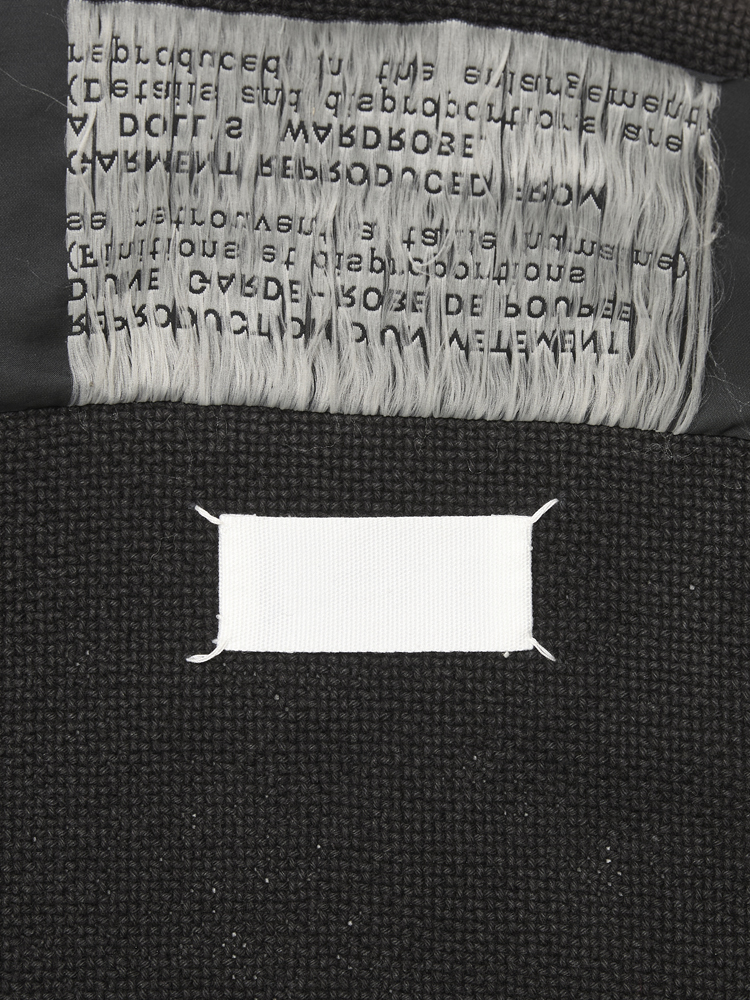 REPRODUCTION D'UN VETEMENT
D'UNE GARDE-ROBE DE POUPEE
(Finitions et disproportions
se retrouvent à taille humaine)
GARMENT REPRODUCED FROM
A DOLL'S WARDROBE.
(Details and disproportions are
reproduced in the enlargement)